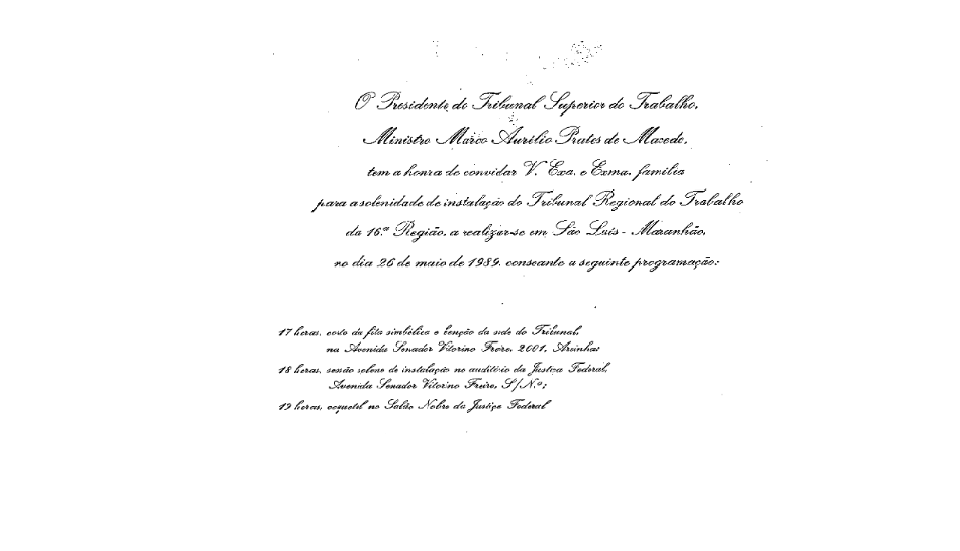 O Presidente do Tribunal Superior do Trabalho,
Ministro Marco Aurélio Prates de Macedo,
tem a honra de convidar V. Exa. e Exma. família
para a solenidade de instalação do Tribunal Regional do Trabalho
da 16.ª Região, a realizar-se em São Luís - Maranhão,
no dia 26 de maio de 1989, consoante a seguinte programação:
17 horas, corte da fita simbólica e benção da sede do Tribunal,
na Avenida Senador Vitorino Freire, 2001, Areinha;
18 horas, sessão solene de instalação no auditório da Justiça Federal,
Avenida Senador Vitorino Freire, S/N.º;
19 horas, coquetel no Salão Nobre da Justiça Federal